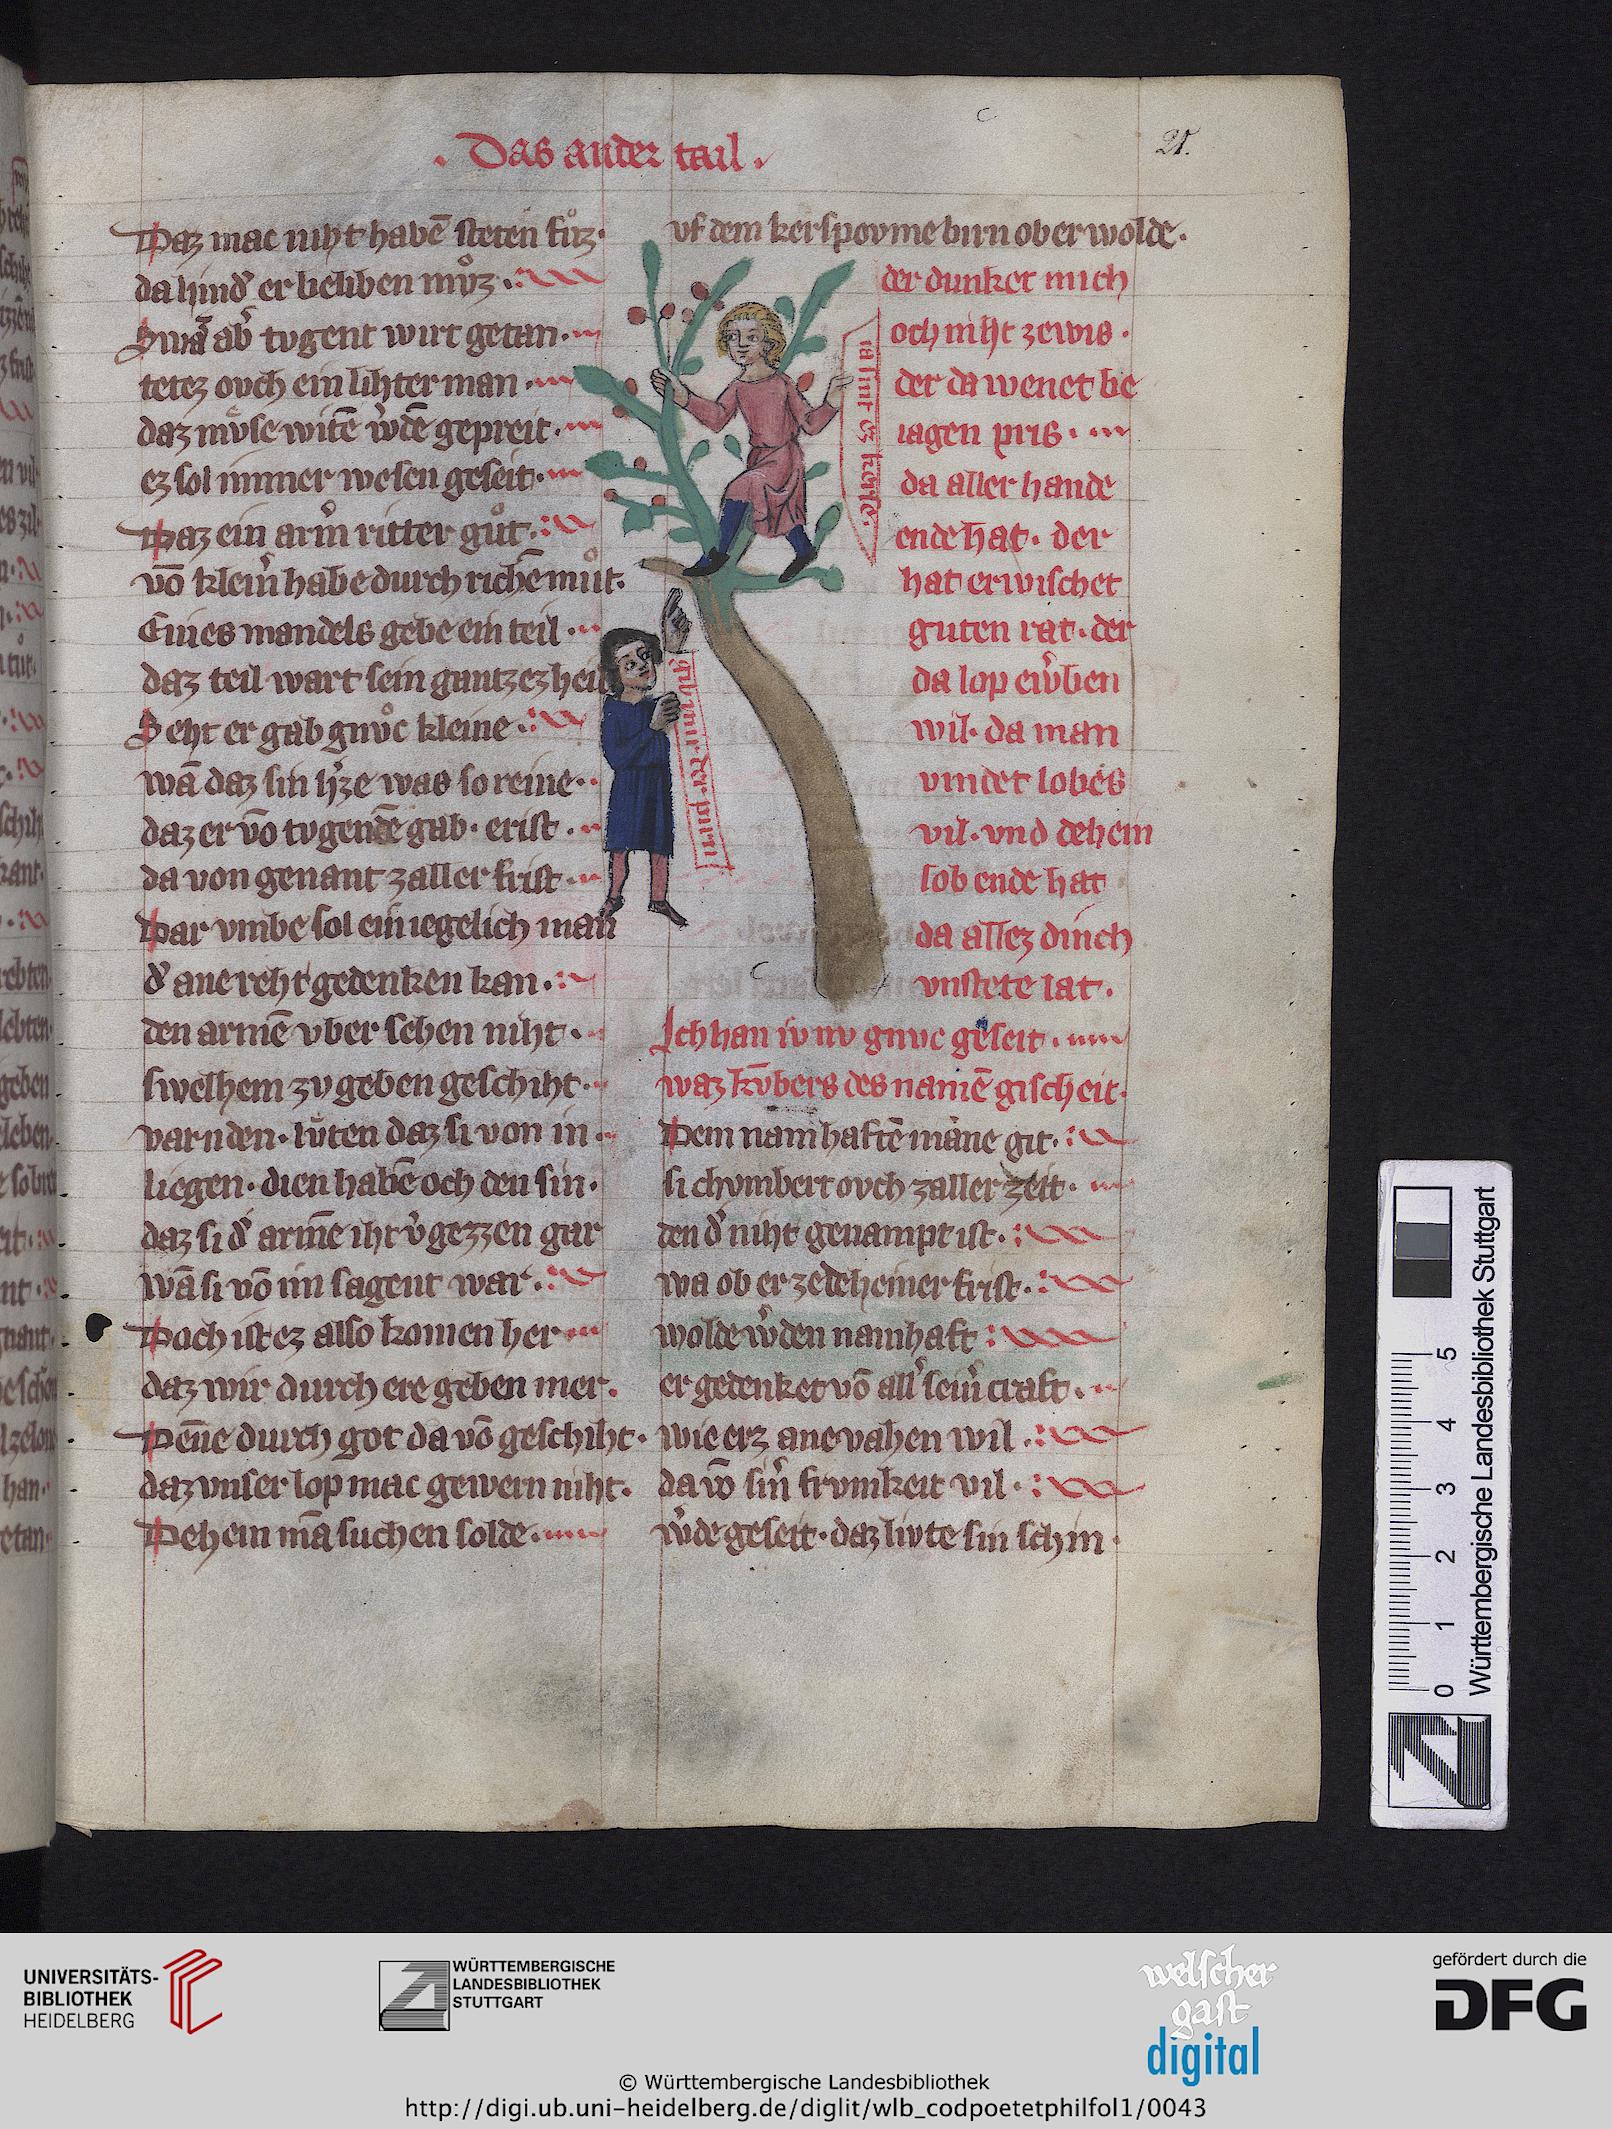 . Das ander tail .
21.
Daz mac niht habē steten fuͦz.
da hind͛ er beliben muͦz.
Swā ab͛ tvgent wirt getan.
tetez ovch ein lihter man.
daz mvͤse witē w͛dē gepreit.
ez sol immer wesen geseit.
Daz ein arm͛ ritter guͦt.
vō klein͛ habe durch richē muͦt.
Eines mandels gebe ein teil.
daz teil wart sein gantzez heil
Seht er gab gnvͦc kleine.
wā daz sin h͛ze was so reine.
daz er vō tvgendē gab. er ist.
da von genant zaller frist.
Dar vmbe sol ein iegelich man
d͛ ane reht gedenken kan.
den armē vber sehen niht.
swelhem zv geben geschiht.
varnden. lvͤten daz si von in.
liegen. dien habē och den sin.
daz si d͛ armē iht v͛gezzen gar
wā si vō im sagent war.
Doch ist ez also komen her
daz wir durch ere geben mer.
Dēne durch got da vō geschiht.
daz vnser lop mac gewern niht.
Dehein mā suchen solde.
vf dem kerspovme birn ob er wolde.
der dunket mich
och niht ze wis.
der da wenet be
iagen pris.
da aller hande
ende hat. der
hat erwischet
guten rat. der
da lop erw͛ben
wil. da man
vindet lobes
vil. vnd dehein
lob ende hat
da allez dinch
vnstete lat.
Ich han iv nv gnvc geseit.
waz kv̄bers des namē gischeit.
Dem namhaftē māne git.
si chvmbert ovch zaller zeit.
den d͛ niht genampt ist.
wa ob er ze deheiner frist.
wolde w͛den namhaft
er gedenket vō all͛ sein͛ craft.
wie erz ane vahen wil.
da vō sin͛ frvmkeit vil.
w͛de geseit. daz livte sin schin.
ia sint ez kerse.
gib mir der pirn
0 1 2 3 4 5
Württembergische Landesbibliothek Stuttgart
UNIVERSITÄTS-
BIBLIOTHEK
HEIDELBERG
WÜRTTEMBERGISCHE
LANDESBIBLIOTHEK
STUTTGART
welscher
gast
digital
gefördert durch die
DFG
© Württembergische Landesbibliothek
http://digi.ub.uni-heidelberg.de/diglit/wlb_codpoetetphilfol1/0043